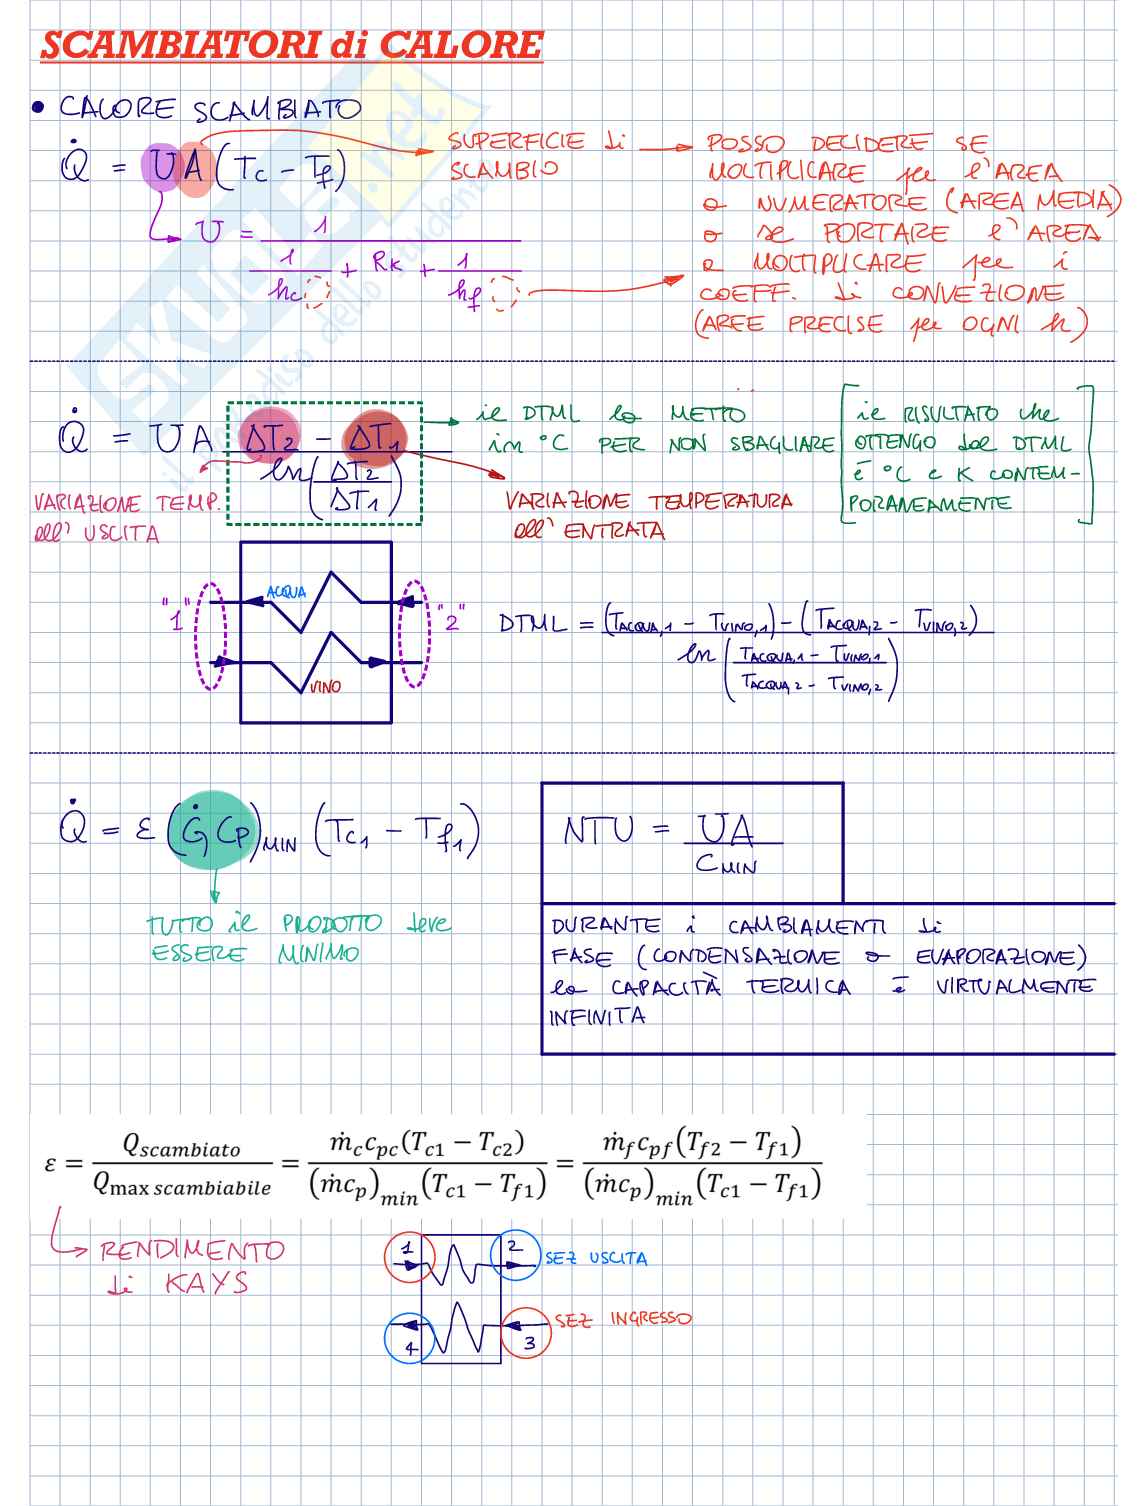 SCAMBIATORI di CALORE
• CALORE SCAMBIATO
Q̇ = UA (Tc - Tf)
SUPERFICIE di
SCAMBIO
POSSO DECIDERE SE
MOLTIPLICARE per l'AREA
a NUMERATORE (AREA MEDIA)
o se PORTARE l'AREA
a MOLTIPLICARE per i
COEFF. di CONVEZIONE
(AREE PRECISE per OGNI h)
U = 1 / (1/hc + Rk + 1/hf)
Q̇ = UA (ΔT2 - ΔT1) / ln(ΔT2/ΔT1)
il DTML lo METTO
in °C PER NON SBAGLIARE
il RISULTATO che
OTTENGO dal DTML
é °C e K CONTEM-
PORANEAMENTE
VARIAZIONE TEMP.
all' USCITA
VARIAZIONE TEMPERATURA
all' ENTRATA
"1"
ACQUA
VINO
"2"
DTML = ((TACQUA,1 - TVINO,1) - (TACQUA,2 - TVINO,2)) / ln((TACQUA,1 - TVINO,1)/(TACQUA,2 - TVINO,2))
Q̇ = ε (Ġ Cp)MIN (Tc1 - Tf1)
TUTTO il PRODOTTO deve
ESSERE MINIMO
NTU = UA / CMIN
DURANTE i CAMBIAMENTI di
FASE (CONDENSAZIONE o EVAPORAZIONE)
la CAPACITÀ TERMICA é VIRTUALMENTE
INFINITA
ε = Qscambiato / Qmax scambiabile = ṁc cpc (Tc1 − Tc2) / (ṁcp)min (Tc1 − Tf1) = ṁf cpf (Tf2 − Tf1) / (ṁcp)min (Tc1 − Tf1)
RENDIMENTO
di KAYS
1
2
SEZ USCITA
4
3
SEZ INGRESSO
SKUOLA.net